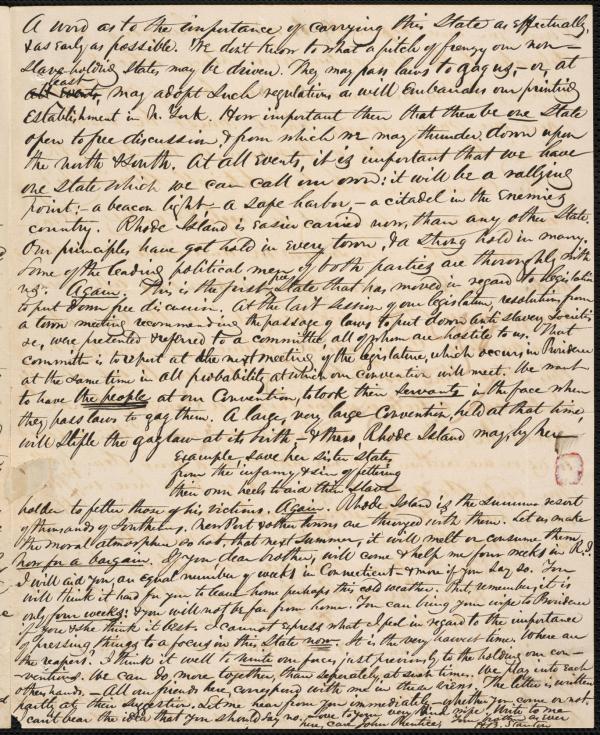 A word as to the importance of carrying this State as effectually,
& as early as possible. We don't know to what a pitch of frenzy our non-
Slave-holding States may be driven. They may pass laws to gag us, - or, at
least may adopt such regulations as will embarrass our printing
Establishment in N. York. How important then that there be one State
open to free discussion, & from which we may thunder down upon
the north & south. At all events, it is important that we have
one State which we can call our own: it will be a rallying
point: - a beacon light - a safe harbor, - a citadel in the enemies
country. Rhode Island is easier carried now, than any other State
Our principles have got hold in every town, & a strong hold in many.
Some of the leading political men of both parties are thoroughly with
us. Again. This is the first State that has moved in regard to legislation
to put down free discussion. At the last session of our legislature, resolutions from
a town meeting recommending the passage of laws to put down anti slavery societies
&c, were presented & referred to a committee, all of whom are hostile to us. That
committee is to report at the next meeting of the legislature, which occurs in Providence
at the same time in all probability, at which our Convention will meet. We want
to have the people at our Convention, to look their servants in the face when
they pass laws to gag them. A large, very large Convention, held at that time,
will stifle the gag law at its birth - & thus, Rhode Island may, by her
Example - save her sister States
from the infamy & sin of fettering
their own heels to aid the slave
holder to fetter those of his victims. Again. Rhode Island is the summer resort
of thousands of Southerns. New Port & other towns are thronged with them. Let us make
the moral atmosphere so hot, that next summer, it will melt or consume them.
Now for a bargain. If you dear brother, will come & help me four weeks in R. I.
I will aid you, an equal number of weeks in Connecticut - & more if you say so. You
will think it hard for you to leave home perhaps this cold weather. But, remember, it is
only four weeks: & you will not be far from home. You can bring your wife to Providence
if you & she think it best. I cannot express what I feel in regard to the importance
of pressing things to a focus in this State now. It is the very harvest time. Where are
the reapers? I think it well to unite our forces just previously to the holding our con-
ventions. We can do more together, than seperately, at such times. We play into each
other's hands. - All our friends here, correspond with me in these views. The letter is written
partly at their suggestion. Let me hear from you immediately - whether you come or not.
I can't bear the idea that you should say no. Love to your very kind wife. Write to me
here, care John Prentice, Your brother as ever
H. B. Stanton